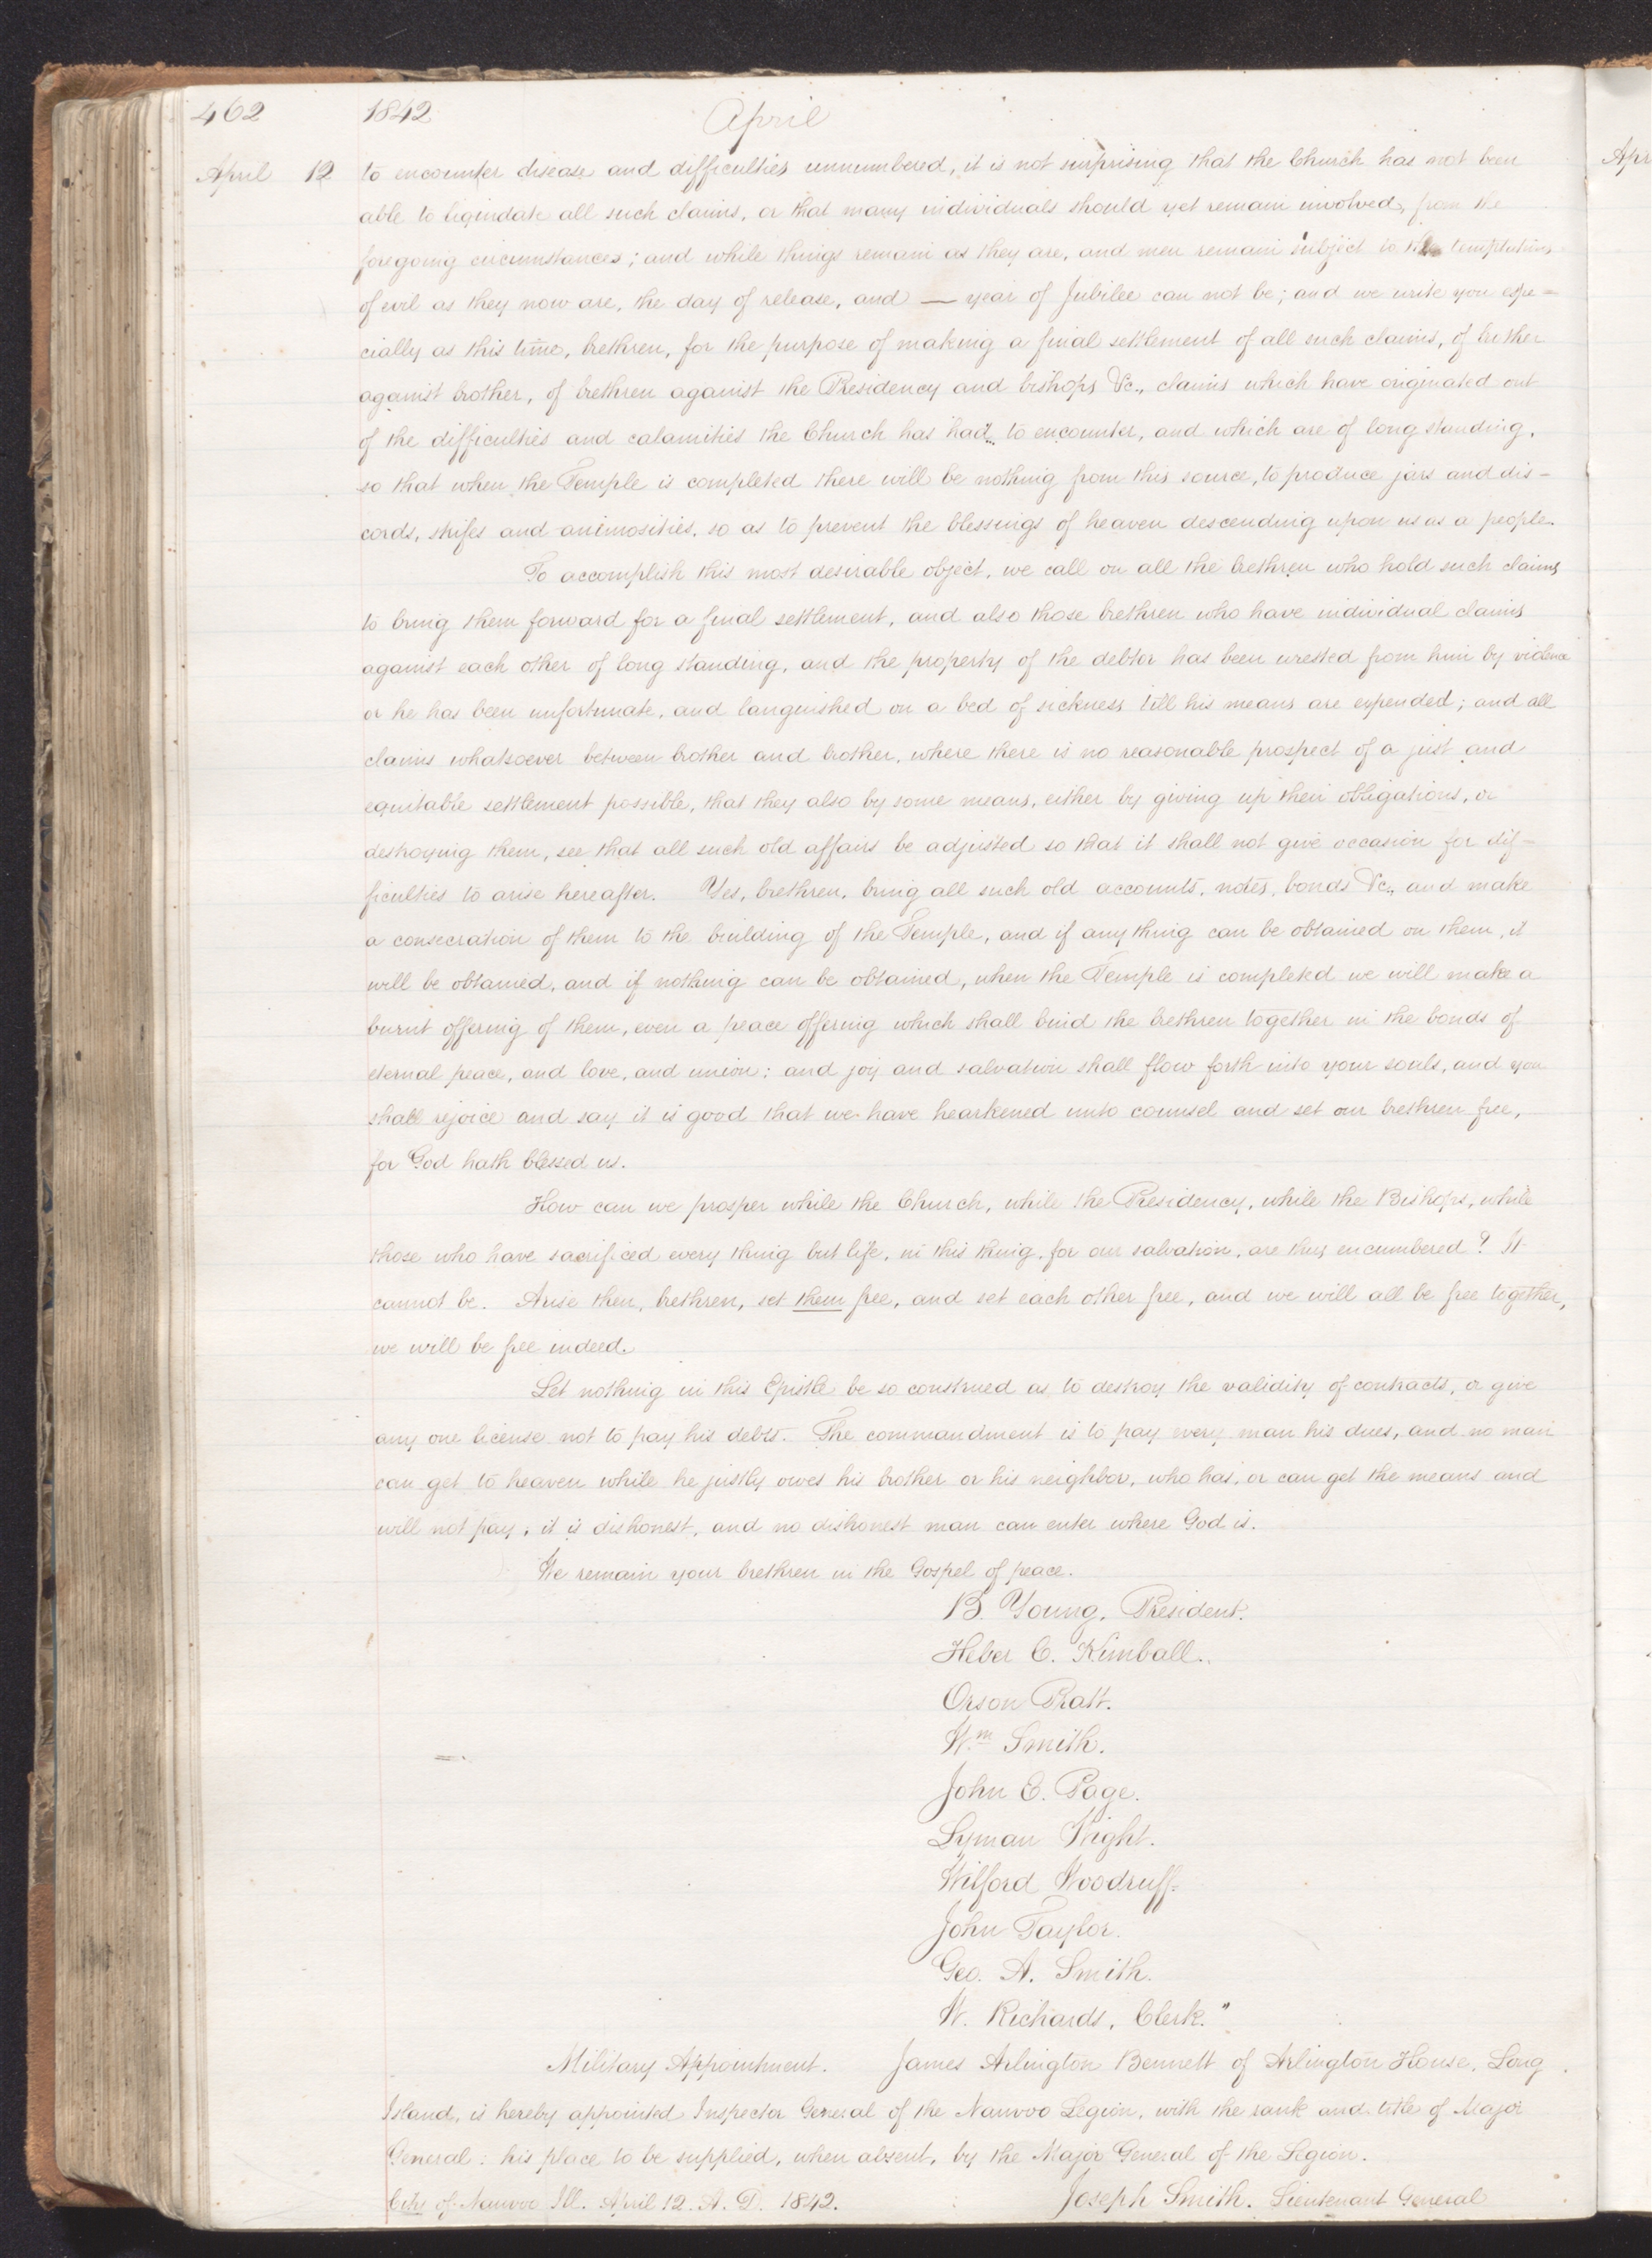 462 1842 April
April 12 to encounter disease and difficulties unnumbered, it is not surprising that the Church has not been
able to liquidate all such claims, or that many individuals should yet remain involved, from the
foregoing circumstances; and while things remain as they are, and men remain subject to the temptations
of evil as they now are, the day of release, and — year of Jubilee can not be; and we write you espe=
cially as this time, brethren, for the purpose of making a final settlement of all such claims, of brother
against brother, of brethren against the Presidency and bishops &c., claims which have originated out
of the difficulties and calamities the Church has had to encounter, and which are of long standing,
so that when the Temple is completed there will be nothing from this source, to produce jars and dis-
cords, strifes and animosities, so as to prevent the blessings of heaven descending upon us as a people.
To accomplish this most desirable object, we call on all the brethren who hold such claims
to bring them forward for a final settlement, and also those brethren who have individual claims
against each other of long standing, and the property of the debtor has been wrested from him by violence
or he has been unfortunate, and languished on a bed of sickness till his means are expended; and all
claims whatsoever between brother and brother, where there is no reasonable prospect of a just and
equitable settlement possible, that they also by some means, either by giving up their obligations, or
destroying them, see that all such old affairs be adjusted so that it shall not give occasion for dif-
ficulties to arise hereafter. Yes, brethren, bring all such old accounts, notes, bonds &c., and make
a consecration of them to the building of the Temple, and if any thing can be obtained on them, it
will be obtained, and if nothing can be obtained, when the Temple is completed we will make a
burnt offering of them, even a peace offering which shall bind the brethren together in the bonds of
eternal peace, and love, and union; and joy and salvation shall flow forth into your souls, and you
shall rejoice and say it is good that we have hearkened unto counsel and set our brethren free,
for God hath blessed us.
How can we prosper while the Church, while the Presidency, while the Bishops, while
those who have sacrificed every thing but life, in this thing, for our salvation, are thus encumbered? It
cannot be. Arise then, brethren, set them free, and set each other free, and we will all be free together,
we will be free indeed.
Let nothing in this Epistle be so construed as to destroy the validity of contracts, or give
any one license not to pay his debts. The commandment is to pay every man his dues, and no man
can get to heaven while he justly owes his brother or his neighbor, who has, or can get the means and
will not pay; it is dishonest, and no dishonest man can enter where God is.
We remain your brethren in the Gospel of peace.
B. Young, President.
Heber C. Kimball.
Orson Pratt.
Wm Smith.
John E. Page.
Lyman Wight.
Wilford Woodruff.
John Taylor.
Geo. A. Smith.
W. Richards, Clerk."
Military Appointment. James Arlington Bennett of Arlington House, Long
Island, is hereby appointed Inspector General of the Nauvoo Legion, with the rank and title of Major
General: his place to be supplied, when absent, by the Major General of the Legion.
City of Nauvoo Ill. April 12. A. D. 1842. Joseph Smith. Lieutenant General